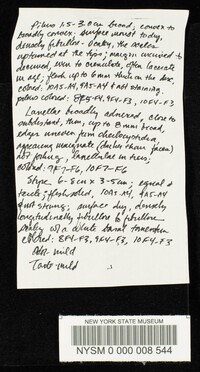 Pileus 1.5-3.0 cm broad, convex to
broadly convex; surface moist to dry,
densely fibrillose-scaly, the scales
upturned at the tips; margin incurved to
decurved, even to crenulate, often lacerate
in age; flesh up to 6 mm thick on the disc,
colored: 10A5-A4, 9A5-A4 & not staining.
pileus colored: 8F5-F4, 9F4-F3, 10F4-F3
Lamellae broadly adnexed, close to
subdistant, thin, up to 8 mm broad,
edges uneven from cheilocystidia &
appearing marginate (darker than faces)
not forking, lamellulae in tiers;
colored: 9F7-F6, 10F7-F6
Stipe 6-8 cm x 3-5 cm; equal &
terete; flesh solid, 10A5-A4, 9A5-A4
& not staining; surface dry, densely
longitudinally fibrillose to fibrillose
scaly w/ a white basal tomentum
colored: 8F4-F3, 9F4-F3, 10F4-F3
Odor mild
Taste mild
NEW YORK STATE MUSEUM
NYSM 0 000 008 544